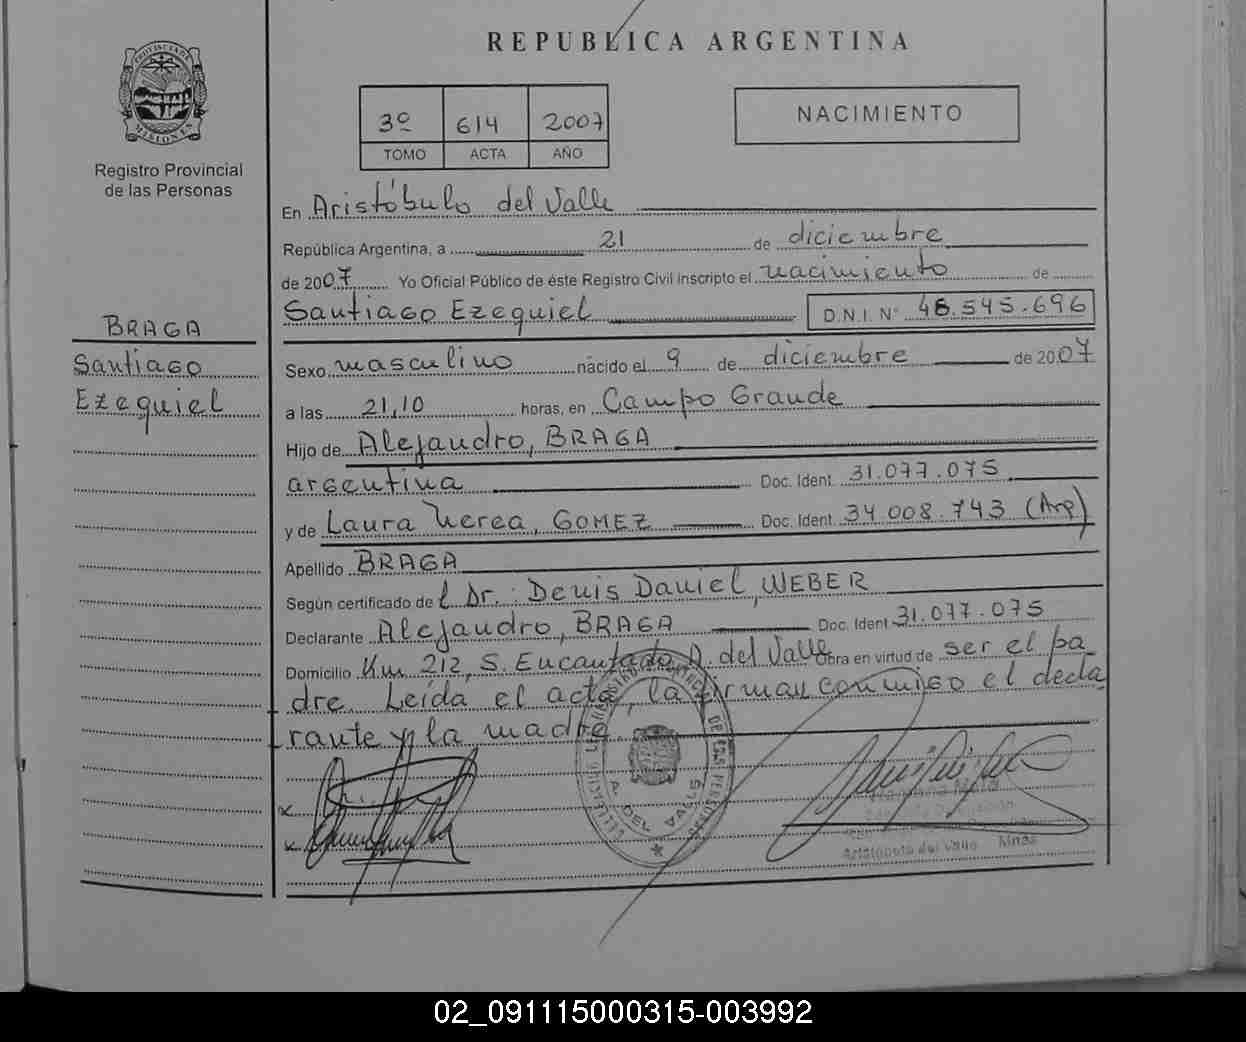 REPUBLICA ARGENTINA
PROVINCIA DE
MISIONES
Registro Provincial
de las Personas
3º 614 2007
TOMO ACTA AÑO
NACIMIENTO
En Aristóbulo del Valle
República Argentina, a 21 de diciembre
de 2007 Yo Oficial Público de éste Registro Civil inscripto el nacimiento de
Santiago Ezequiel D.N.I. Nº 48.545.696
BRAGA
Santiago
Ezequiel
Sexo masculino nacido el 9 de diciembre de 2007
a las 21,10 horas, en Campo Grande
Hijo de Alejandro, BRAGA
argentina Doc. Ident. 31.077.075
y de Laura Nerea, GOMEZ Doc. Ident. 34.008.743 (Arg)
Apellido BRAGA
Según certificado del Dr.: Denis Daniel, WEBER
Declarante Alejandro, BRAGA Doc. Ident. 31.077.075
Domicilio Km 212, S. Encantado A. del Valle Obra en virtud de ser el pa-
dre. Leída el acta, la firman conmigo el decla
rante y la madre
A. DEL VALLE
DE LAS PERSONAS
x
x
Aristóbulo del Valle Mnes
02_091115000315-003992